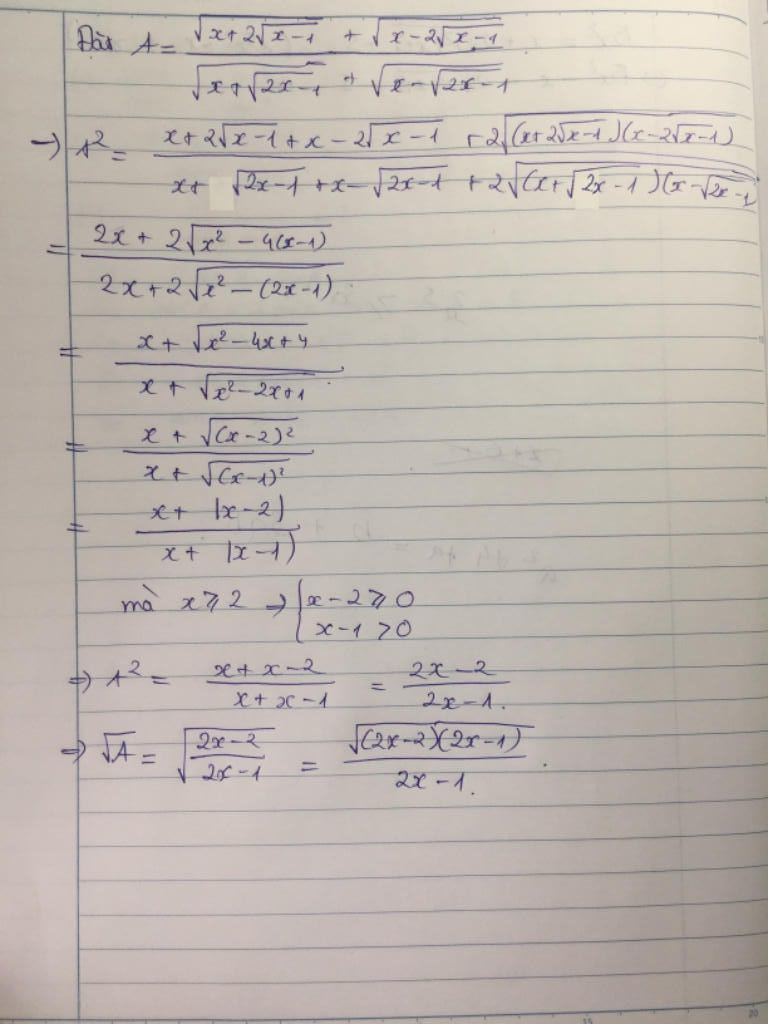 Đặt A = (√(x+2√(x-1)) + √(x-2√(x-1))) / (√(x+√(2x-1)) + √(x-√(2x-1)))
→ A² = (x+2√(x-1)+x-2√(x-1) +2√((x+2√(x-1))(x-2√(x-1)))) / (x+√(2x-1)+x-√(2x-1) +2√((x+√(2x-1))(x-√(2x-1))))
= (2x+2√(x²-4(x-1))) / (2x+2√(x²-(2x-1)))
= (x+√(x²-4x+4)) / (x+√(x²-2x+1))
= (x+√((x-2)²)) / (x+√((x-1)²))
= (x+|x-2|) / (x+|x-1|)
mà x ⩾ 2 → { x-2 ⩾ 0
x-1 > 0
⇒ A² = (x+x-2)/(x+x-1) = (2x-2)/(2x-1).
⇒ √A = √((2x-2)/(2x-1)) = √((2x-2)(2x-1))/(2x-1).